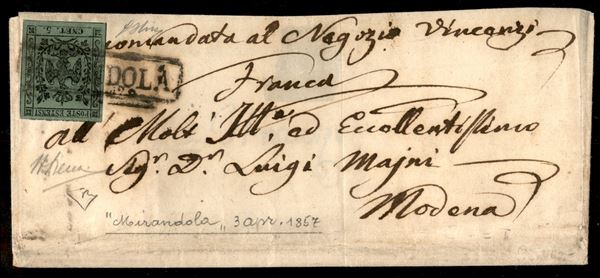 CNET. 5.
POSTE ESTENSI
DOLA
comandata al Negozio Vincenzi
Franca
All' Molt' Ill.e ed Eccellentissimo
Sig.r D.r Luigi Majni
Modena
"Mirandola„ 3 apr. 1857